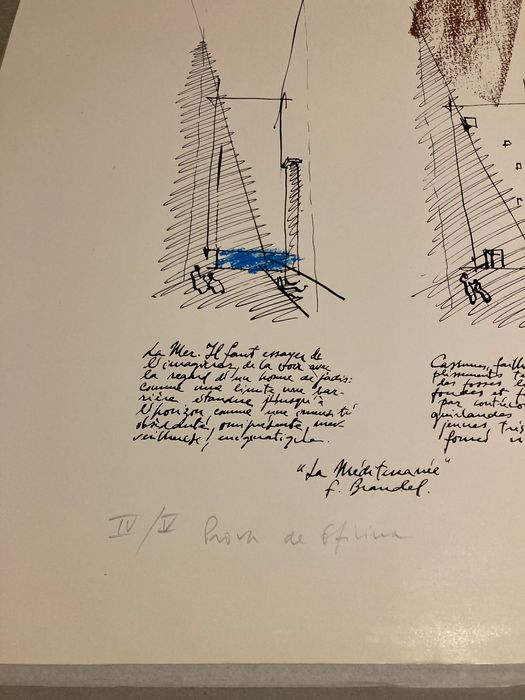 La Mer. Il faut essayer de
l'imaginer, de la voir avec
la regard d'un home de jadis:
comme une limite une bar-
rière étendue jusqu'à
l'horizon, comme une immensité
obsédante, omniprésente, mer-
veilleuse, enigmatique.
"La Méditerranée"
F. Braudel.
IV/V Prova de Oficina
plissements
les fosses
fondes et
par
guirlandes
jeunes, très